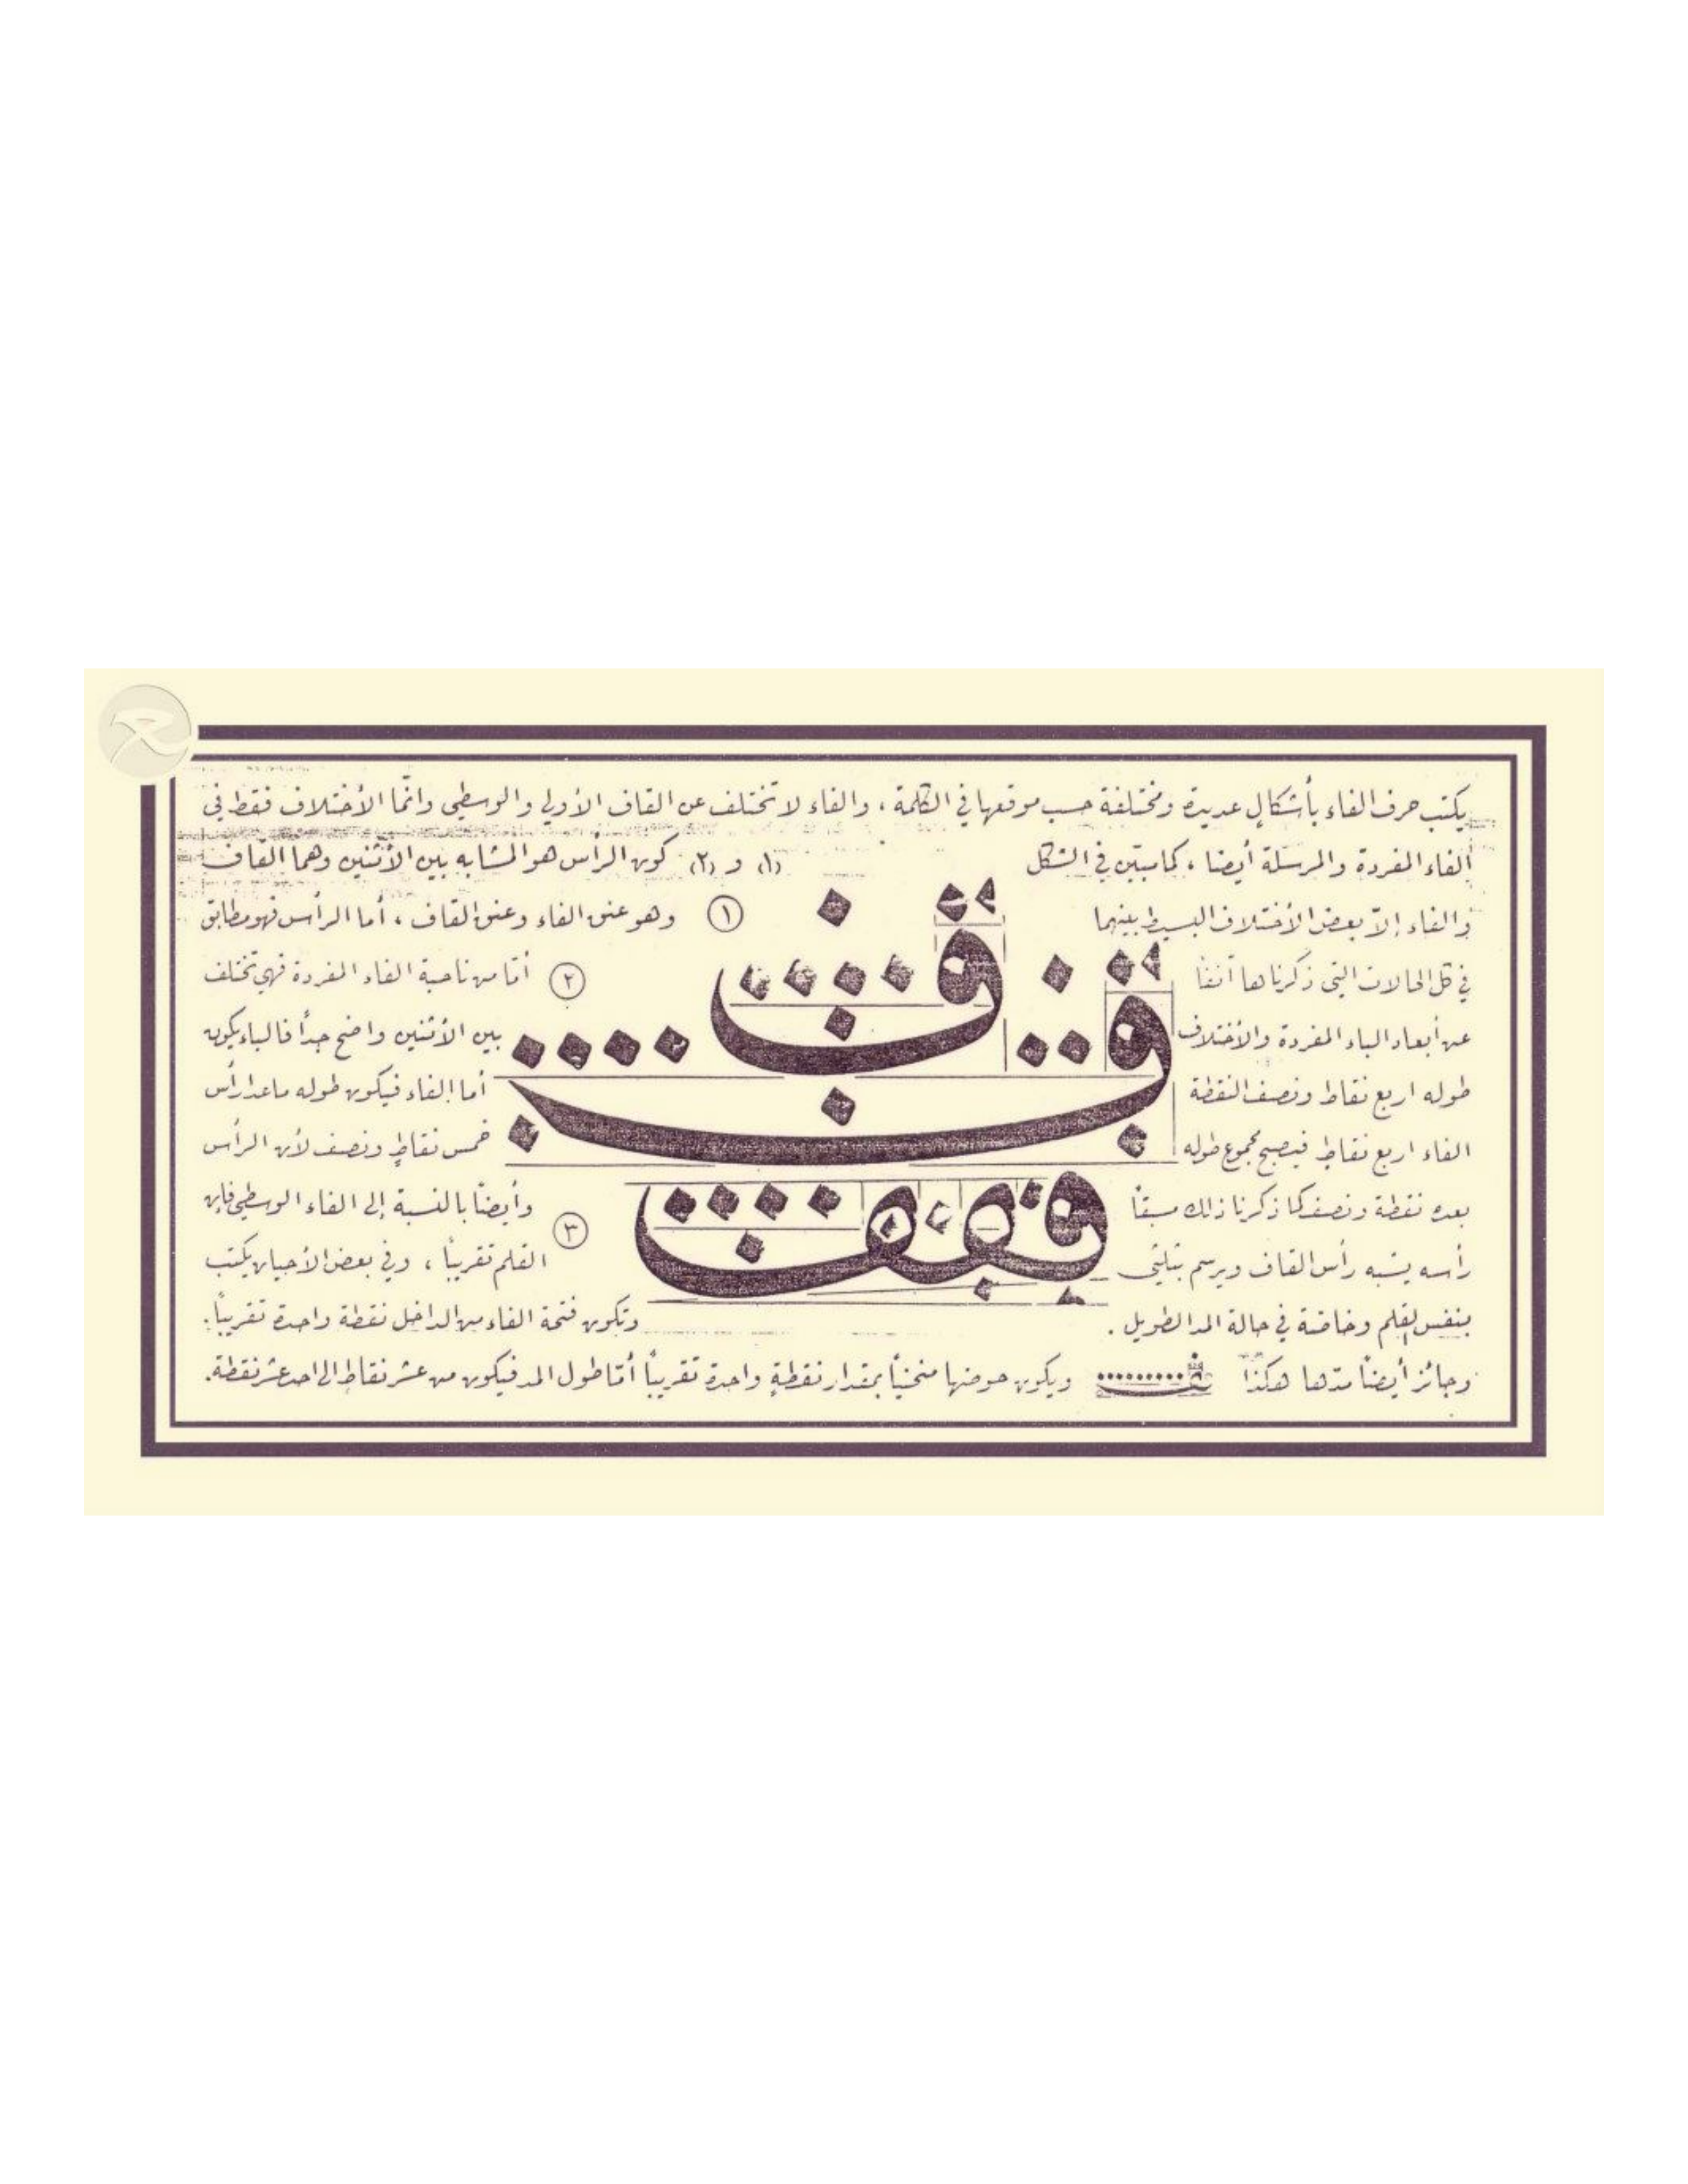 يكتب حرف الفاء بأشكال عديدة ومختلفة حسب موقعها في الكلمة ، والفاء لا تختلف عن القاف الأولى والوسطى وانّما الأختلاف فقط في
الفاء المفردة والمرسلة أيضا ، كما مبيّن في الشكل (١) و (٢) كون الرأس هو المشابه بين الأثنين وهما القاف
والفاء إلاّ بعض الأختلاف البسيط بينهما ١ وهو عنق الفاء وعنق القاف ، أما الرأس فهو مطابق
في كل الحالات التي ذكرناها آنفاً ٢ أمّا من ناحية الفاء المفردة فهي تختلف
عن أبعاد الباء المفردة والأختلاف بين الأثنين واضح جداً فالباء يكون
طوله اربع نقاط ونصف النقطة أما الفاء فيكون طوله ماعدا رأس
الفاء اربع نقاط فيصبح مجموع طوله خمس نقاط ونصف لأن الرأس
بعده نقطة ونصف كما ذكرنا ذلك مسبقاً وأيضاً بالنسبة إلى الفاء الوسطى فإن
رأسه يشبه رأس القاف ويرسم بثلثي ٣ القلم تقريباً ، وفي بعض الأحيان يكتب
بنفس القلم وخاصة في حالة المد الطويل . وتكون فتحة الفاء من الداخل نقطة واحدة تقريباً .
وجائز أيضاً مدّها هكذا ويكون حوضها منحنياً بمقدار نقطةٍ واحدة تقريباً أمّا طول المد فيكون من عشر نقاط الى احد عشر نقطة .
ف
ف
ففف